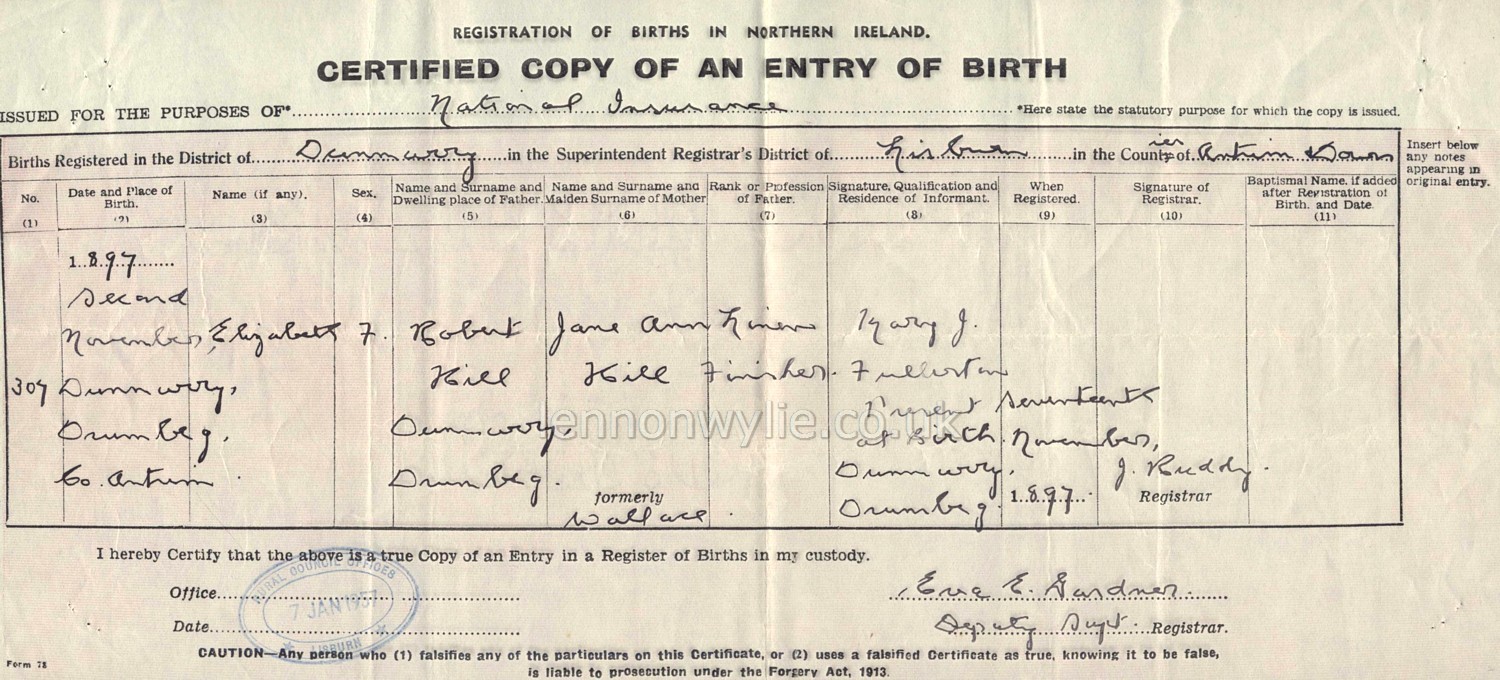 REGISTRATION OF BIRTHS IN NORTHERN IRELAND.
CERTIFIED COPY OF AN ENTRY OF BIRTH
ISSUED FOR THE PURPOSES OF* National Insurance *Here state the statutory purpose for which the copy is issued.
Births Registered in the District of Dunmurry in the Superintendent Registrar's District of Lisburn in the Counties of Antrim & Down
Insert below any notes appearing in original entry.
No. (1)
Date and Place of Birth. (2)
Name (if any). (3)
Sex. (4)
Name and Surname and Dwelling place of Father. (5)
Name and Surname and Maiden Surname of Mother (6)
Rank or Profession of Father. (7)
Signature, Qualification and Residence of Informant. (8)
When Registered. (9)
Signature of Registrar. (10)
Baptismal Name, if added after Registration of Birth, and Date (11)
307
1897
Second
November,
Dunmurry,
Drumbeg,
Co. Antrim
Elizabeth
F.
Robert
Hill
Dunmurry,
Drumbeg.
Jane Ann
Hill
formerly
Wallace.
Linen
Finisher.
Mary J.
Fullerton
Present
at Birth.
Dunmurry,
Drumbeg.
Seventeenth
November,
1897.
J. Ruddy.
Registrar
lennonwylie.co.uk
I hereby Certify that the above is a true Copy of an Entry in a Register of Births in my custody.
Office
RURAL COUNCIL OFFICES
7 JAN 1957
LISBURN
Date
Eric E. Gardner.
Deputy Supt. Registrar.
CAUTION—Any person who (1) falsifies any of the particulars on this Certificate, or (2) uses a falsified Certificate as true, knowing it to be false,
is liable to prosecution under the Forgery Act, 1913.
Form 78